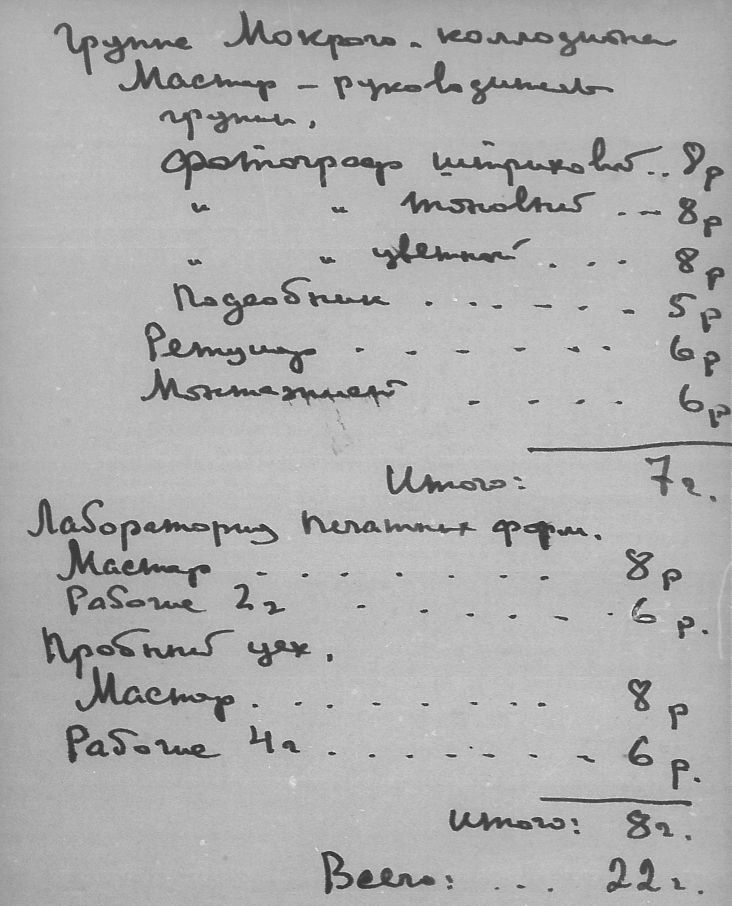 Группа Мокрого-коллодиона
Мастер – руководитель
группы.
Фотограф штриховой .. 8р
" " тоновый . -- 8р
" " цветной . . . 8р
Подсобник . . . . . . . 5р
Ретушер . . . . . . . 6р
Монтажный . . . . 6р
Итого: 7ч.
Лаборатория печатных форм.
Мастер . . . . . . . 8р
Рабочие 2ч . . . . . . 6р.
Пробный цех.
Мастер . . . . . . . 8р
Рабочие 4ч . . . . . . . 6р.
Итого: 8ч.
Всего: . . . 22ч.